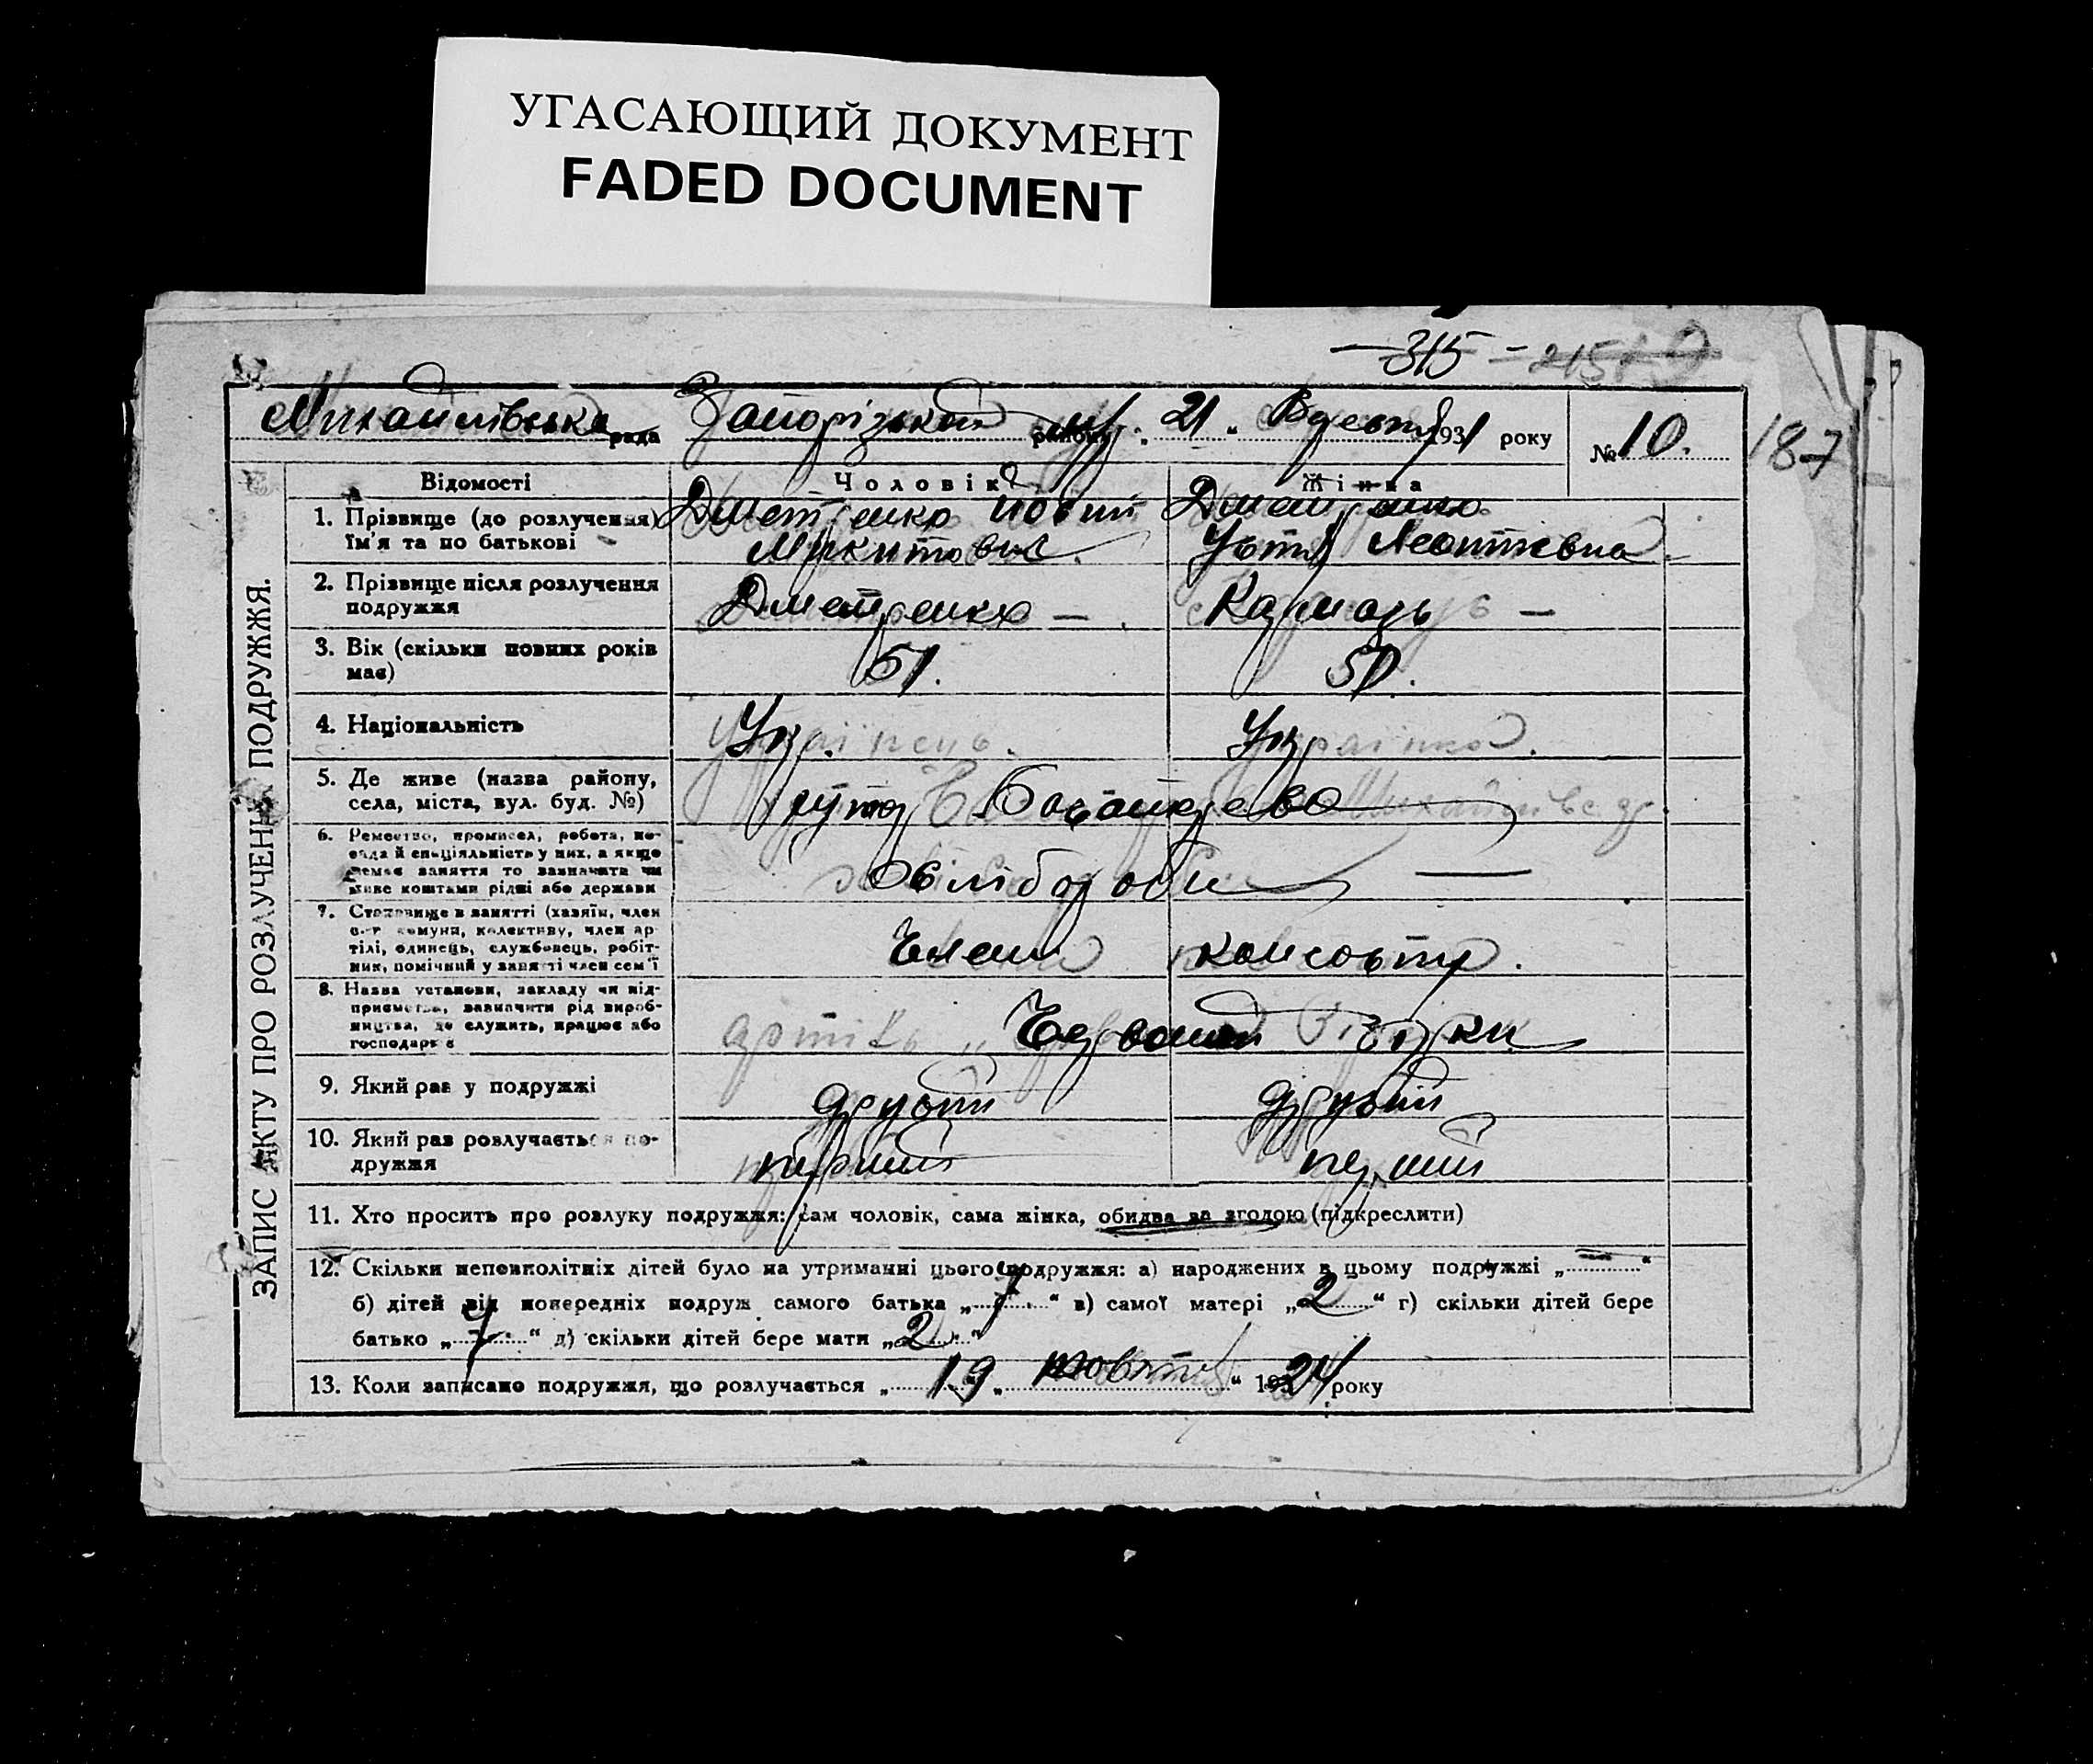 УГАСАЮЩИЙ ДОКУМЕНТ
FADED DOCUMENT
315
Михайлівська рада Запорізький району 21. 1931 року № 10. 187
ЗАПИС АКТУ ПРО РОЗЛУЧЕННЯ ПОДРУЖЖЯ.
Відомості Чоловік Жінка
1. Прізвище (до розлучення) Дметренко Йовий Дметренко
ім'я та по батькові Микитович Устя Леонтівна
2. Прізвище після розлучення
подружжя Дметренко — Кармазь —
3. Вік (скільки повних років
має) 51. 50.
4. Національність Укр. Українка.
5. Де живе (назва району,
села, міста, вул. буд. №)
6. Ремество, промисел, робота, по-
сада й спеціяльність у них, а якщо
немає заняття то зазначити чи
живе коштами рідні або держави хлібороби —
7. Становище в занятті (хазяїн, член
с-г комуни, колективу, член ар-
тілі, одинець, службовець, робіт-
ник, помічний у занятті член сем'ї Член
8. Назва установи, закладу чи під-
приємства, зазначити рід вироб-
ництва, де служить, працює або
господарює артіль Червоний
9. Який раз у подружжі другий другий
10. Який раз розлучається по-
дружжя перший перший
11. Хто просить про розлуку подружжя: сам чоловік, сама жінка, обидва за згодою (підкреслити)
12. Скільки неповнолітніх дітей було на утриманні цього подружжя: а) народжених в цьому подружжі „—“
б) дітей від попередніх подруж самого батька „ “ в) самої матері „2“ г) скільки дітей бере
батько „ “ д) скільки дітей бере мати „2“
13. Коли записано подружжя, що розлучається „19“ „жовтня“ 1924 року